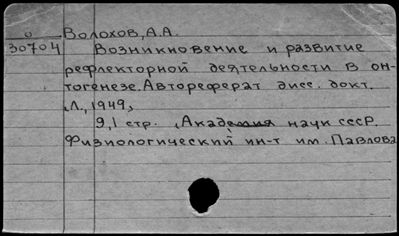 О
Волохов, А.А.
30704 Возникновение и развитие
рефлекторной деятельности в он-
тогенезе. Автореферат дисс. докт.
Л., 1949,
9,1 стр. (Академия наук СССР.
Физиологический ин-т им. Павлова